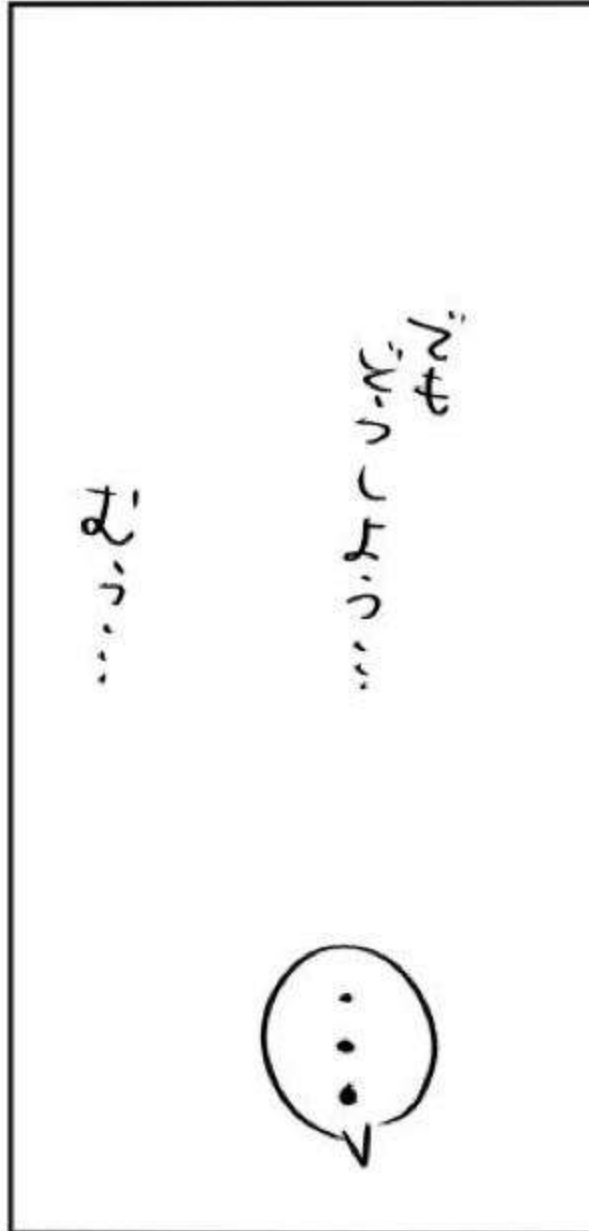 でも
どうしよう…
むう…
…